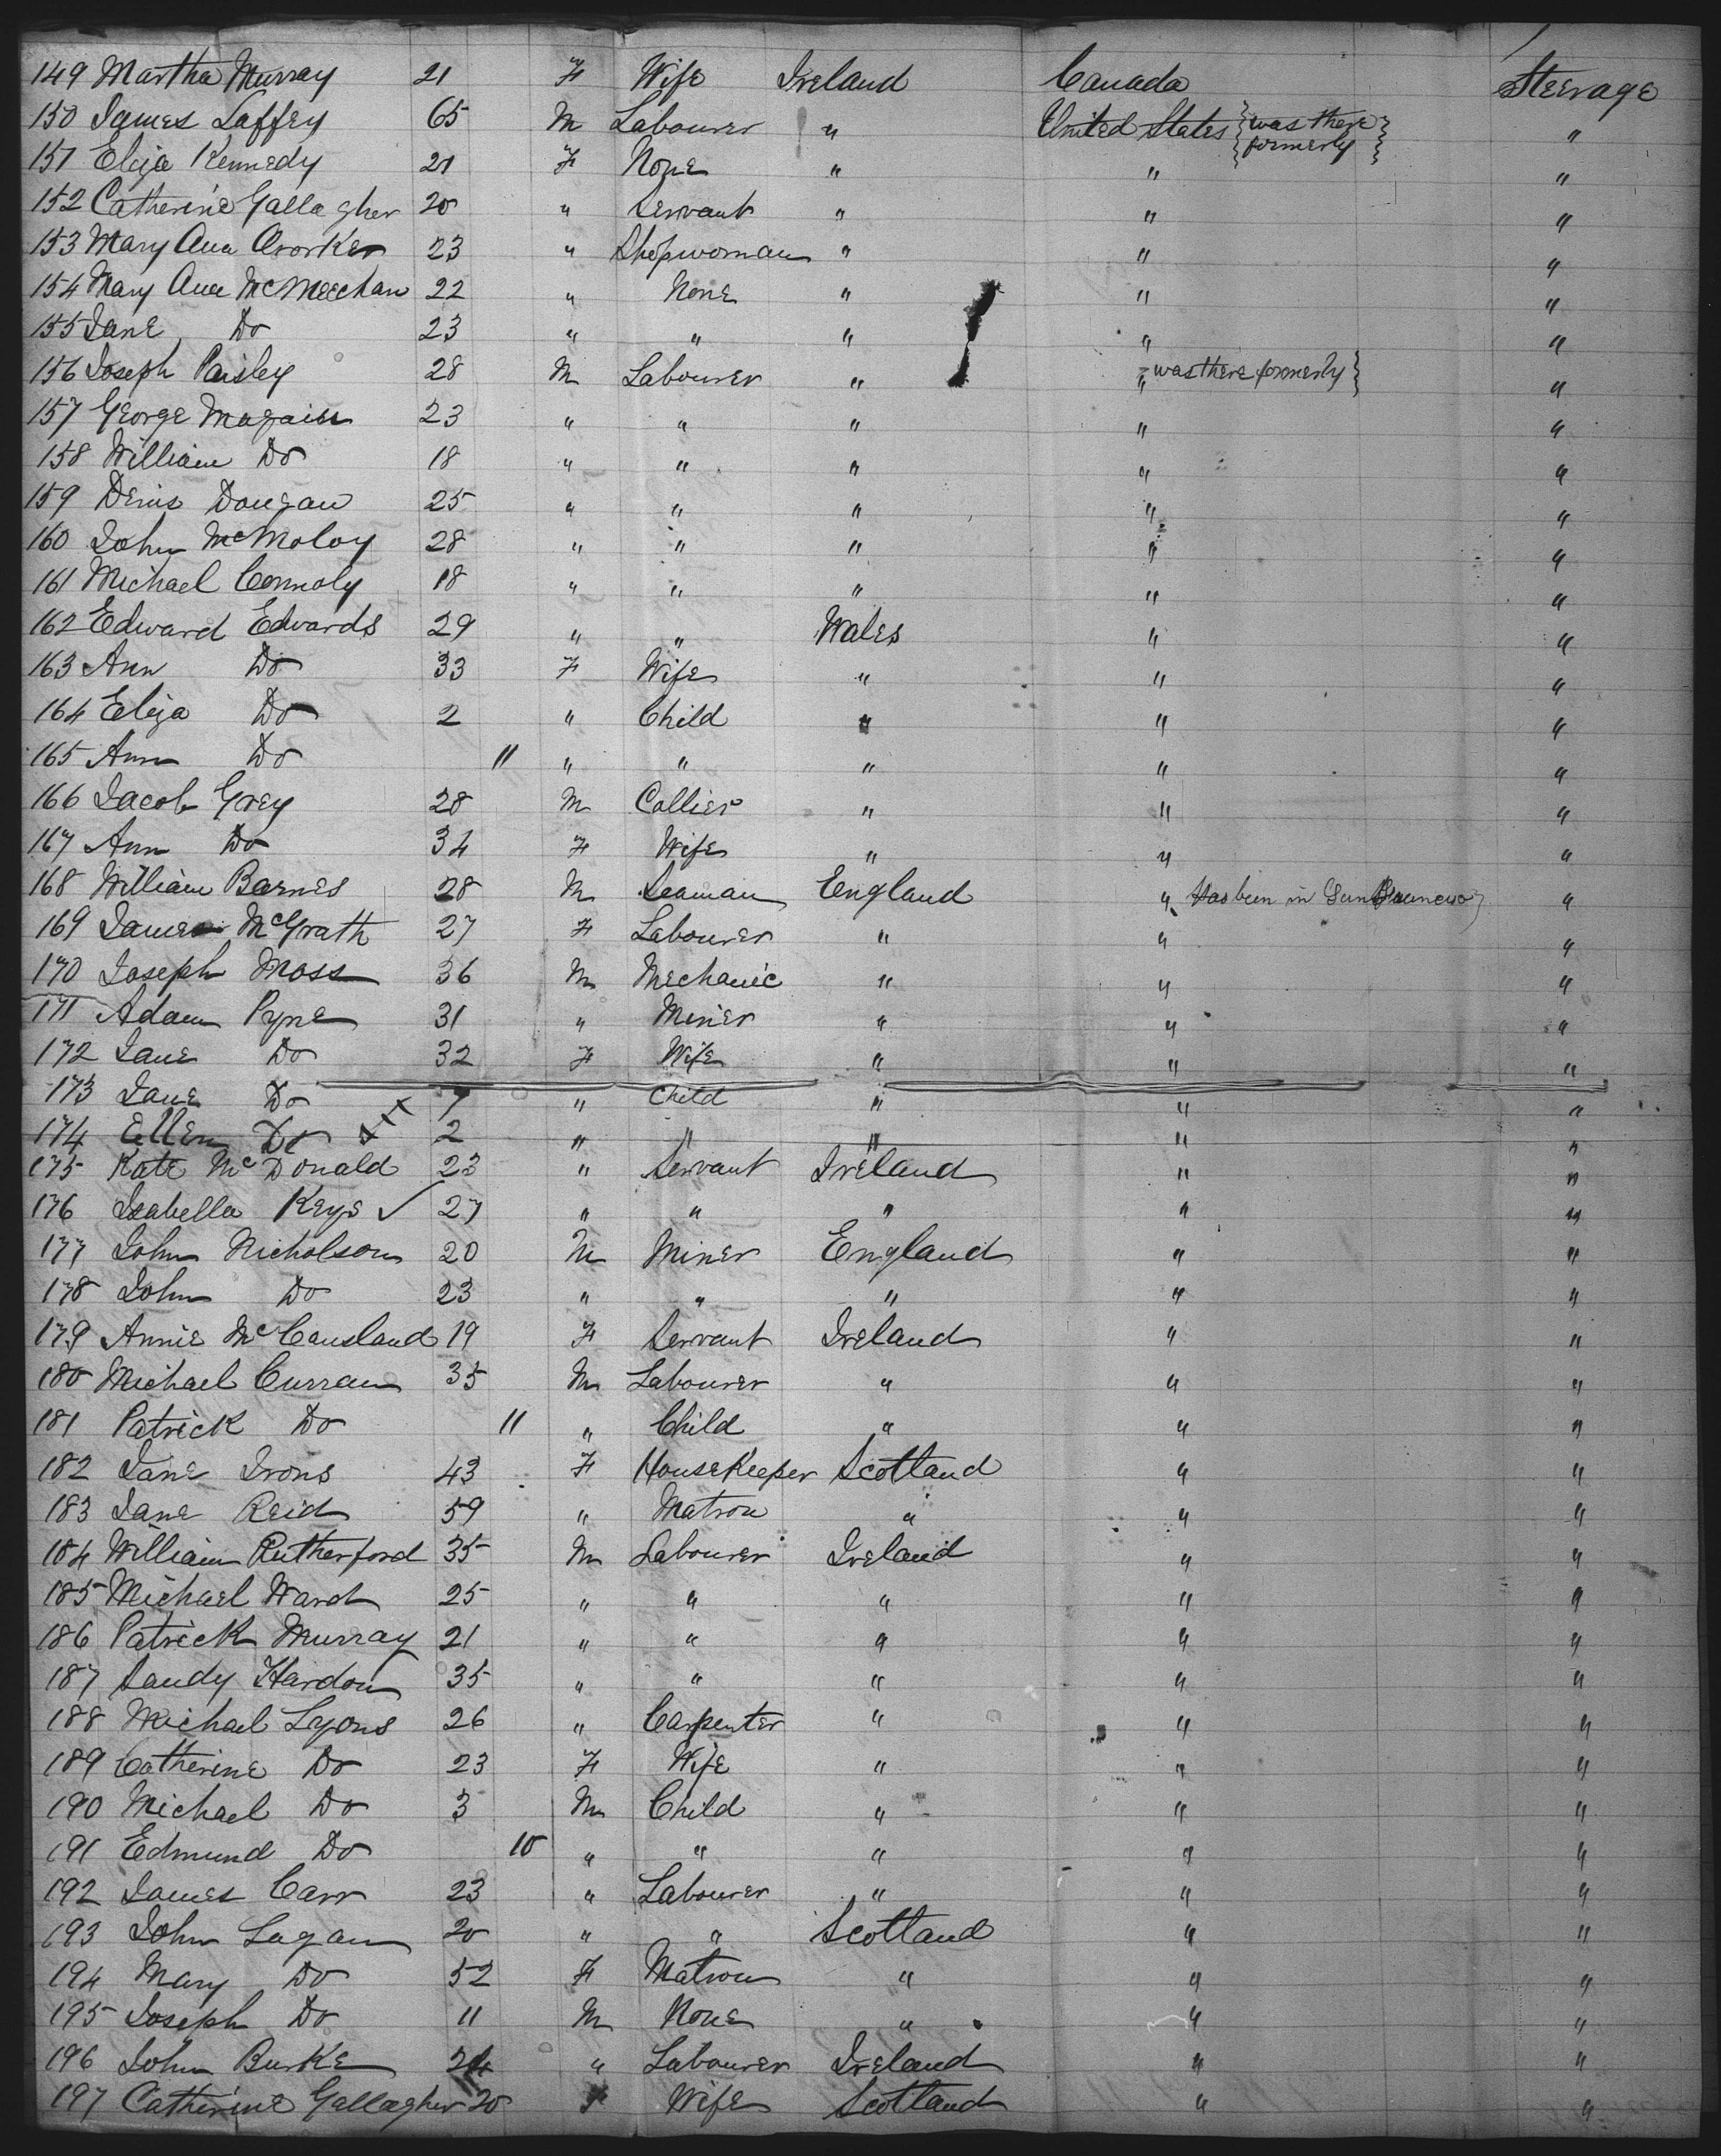 149 Martha Murray 21 F Wife Ireland Canada Steerage
150 James Laffey 65 M Labourer " United States {was there formerly} "
151 Eliza Kennedy 21 F None " " "
152 Catherine Gallagher 20 " Servant " " "
153 Mary Ann Ororker 23 " Shopwoman " " "
154 Mary Ann McMeechan 22 " None " " "
155 Jane Do 23 " " " " "
156 Joseph Paisley 28 M Labourer " " was there formerly} "
157 George 23 " " " " "
158 William Do 18 " " " " "
159 Denis Dougan 25 " " " " "
160 John McMoloy 28 " " " " "
161 Michael Connoly 18 " " " " "
162 Edward Edwards 29 " " Wales " "
163 Ann Do 33 F Wife " " "
164 Eliza Do 2 " Child " " "
165 Ann Do 11 " " " " "
166 Jacob Grey 28 M Collier " " "
167 Ann Do 34 F Wife " " "
168 William Barnes 28 M Seaman England " Has been in "
169 James McGrath 27 F Labourer " " "
170 Joseph Moss 36 M Mechanic " " "
171 Adam Pyne 31 " Miner " " "
172 Jane Do 32 F Wife " " "
173 Jane Do 7 " Child " " "
174 Ellen Do 2 " " " " "
175 Kate McDonald 23 " Servant Ireland " "
176 Isabella Keys ✓ 27 " " " " "
177 John Nicholson 20 M Miner England " "
178 John Do 23 " " " " "
179 Annie McCausland 19 F Servant Ireland " "
180 Michael Curran 35 M Labourer " " "
181 Patrick Do 11 " Child " " "
182 Jane Irons 43 F HouseKeeper Scotland " "
183 Jane Reid 59 " Matron " " "
184 William Rutherford 35 M Labourer Ireland " "
185 Michael Ward 25 " " " " "
186 Patrick Murray 21 " " " " "
187 Sandy Hardon 35 " " " " "
188 Michael Lyons 26 " Carpenter " " "
189 Catherine Do 23 F Wife " " "
190 Michael Do 3 M Child " " "
191 Edmund Do 10 " " " " "
192 James Carr 23 " Labourer " " "
193 John Logan 20 " " Scotland " "
194 Mary Do 52 F Matron " " "
195 Joseph Do 11 M None " " "
196 John Burke 24 " Labourer Ireland " "
197 Catherine Gallagher 20 F Wife Scotland " "